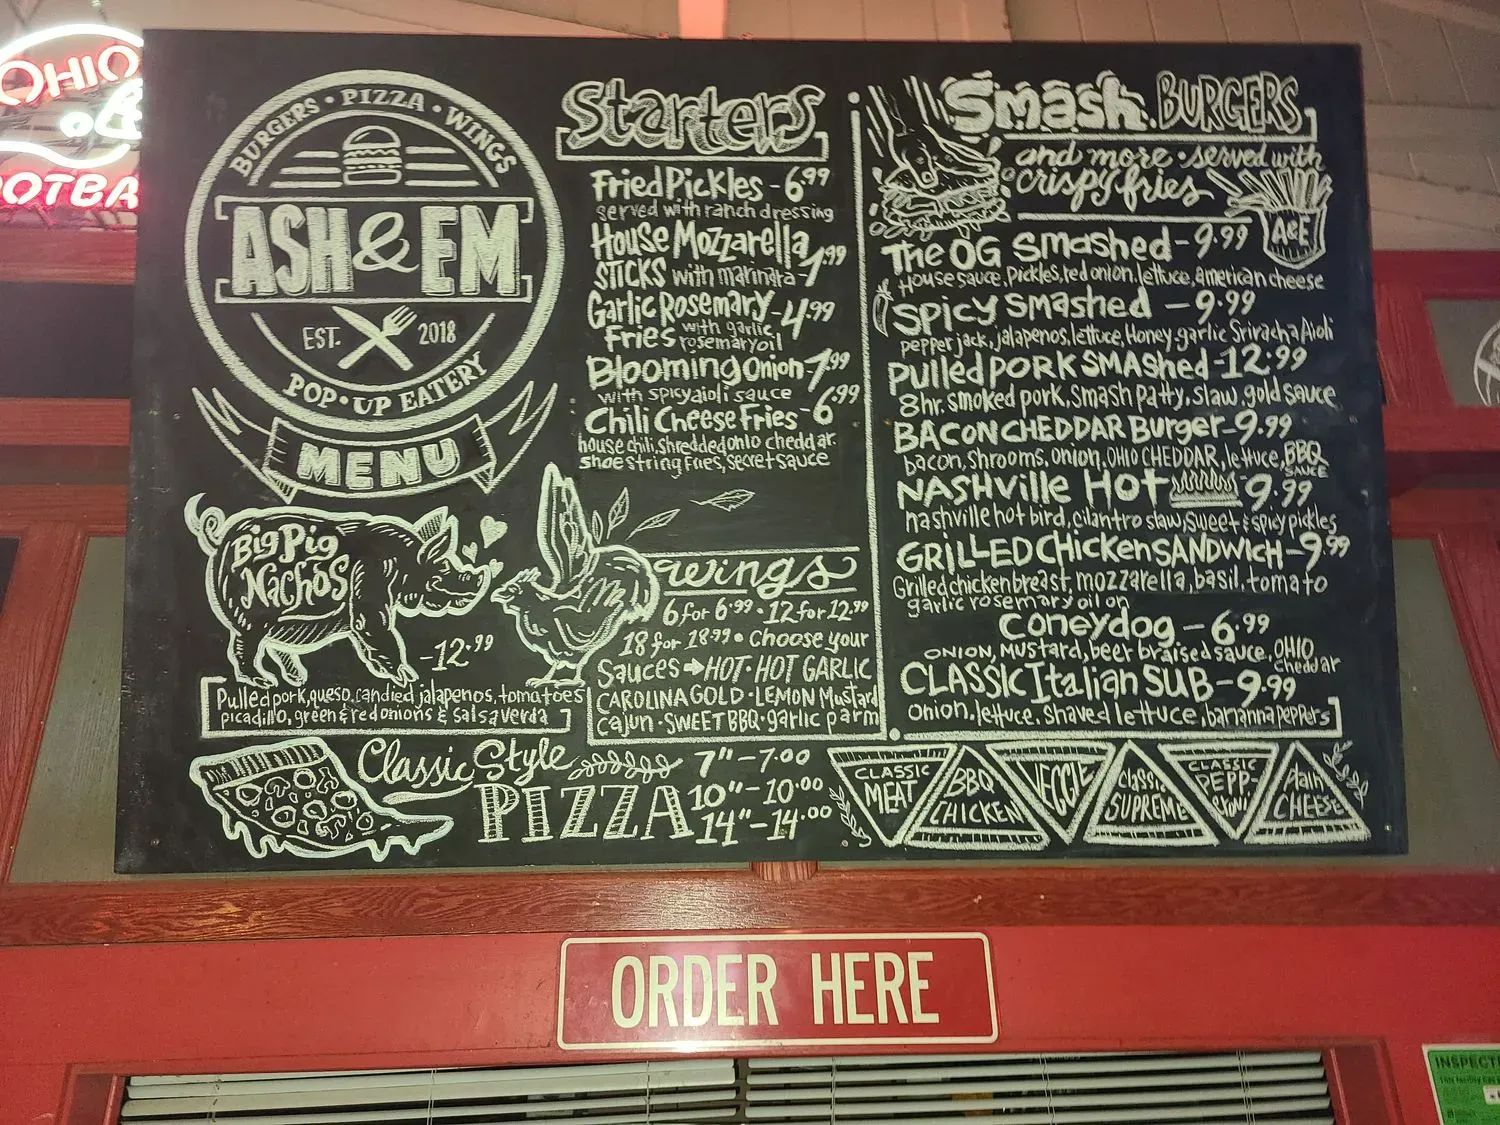 OHIO
OOTBA
BURGERS • PIZZA • WINGS
ASH & EM
EST. 2018
POP-UP EATERY
MENU
Big Pig
Nachos
-12.99
Pulled pork, queso, candied jalapenos, tomatoes
picadillo, green & red onions & salsa verda
Starters
Fried Pickles - 6.99
served with ranch dressing
House Mozzarella
STICKS with marinara - 7.99
Garlic Rosemary - 4.99
Fries with garlic
rosemary oil
Blooming Onion - 7.99
with spicy aioli sauce
Chili Cheese Fries - 6.99
house chili, shredded ohio cheddar.
shoestring fries, secret sauce
wings
6 for 6.99 • 12 for 12.99
18 for 18.99 • Choose your
Sauces → HOT • HOT GARLIC
CAROLINA GOLD • LEMON Mustard
cajun • SWEET BBQ • garlic parm
Smash BURGERS
and more • served with
crispy fries
A&E
The OG Smashed - 9.99
House sauce, pickles, red onion, lettuce, american cheese
Spicy Smashed - 9.99
pepper jack, jalapenos, lettuce, Honey garlic Sriracha Aioli
Pulled PORK SMAshed - 12.99
8hr. smoked pork, Smash Patty, slaw, gold sauce
BACON CHEDDAR Burger - 9.99
bacon, shrooms, onion, OHIO CHEDDAR, lettuce, BBQ
SAUCE
NASHville Hot 9.99
nashville hot bird, cilantro slaw, sweet & spicy pickles
GRILLED CHickeN SANDWicH - 9.99
Grilled chicken breast, mozzarella, basil, tomato
garlic rosemary oil on
coneydog - 6.99
ONION, MUstard, beer braised sauce, OHIO
cheddar
CLASSIC Italian SUB - 9.99
onion, lettuce, shaved lettuce, bananna peppers
Classic Style
PIZZA
7" - 7.00
10" - 10.00
14" - 14.00
CLASSIC
MEAT
BBQ
CHICKEN
VEGGIE
CLASSIC
SUPREME
CLASSIC
PEPP-
Plain
CHEESE
ORDER HERE
INSPECT